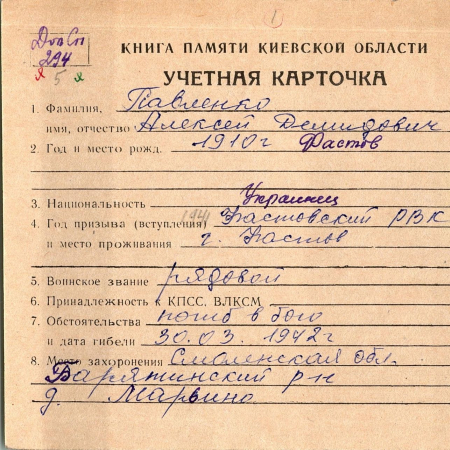 Доп Сп
294
я 5 я
КНИГА ПАМЯТИ КИЕВСКОЙ ОБЛАСТИ
УЧЕТНАЯ КАРТОЧКА
1. Фамилия, Павленко
имя, отчество Алексей Демидович
2. Год и место рожд. 1910г Фастов
3. Национальность Украинец
4. Год призыва (вступления) 1941 Фастовский РВК
и место проживания г. Фастов
5. Воинское звание рядовой
6. Принадлежность к КПСС, ВЛКСМ
7. Обстоятельства погиб в бою
и дата гибели 30.03.1942г
8. Место захоронения Смоленская обл.
Барятинский р-н
д. Марвино